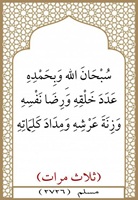 سُبْحَانَ اللهِ وَبِحَمْدِهِ
عَدَدَ خَلْقِهِ وَرِضَا نَفْسِهِ
وَزِنَةَ عَرْشِهِ وَمِدَادَ كَلِمَاتِهِ
(ثلاث مرات)
مسلم (٢٧٢٦)